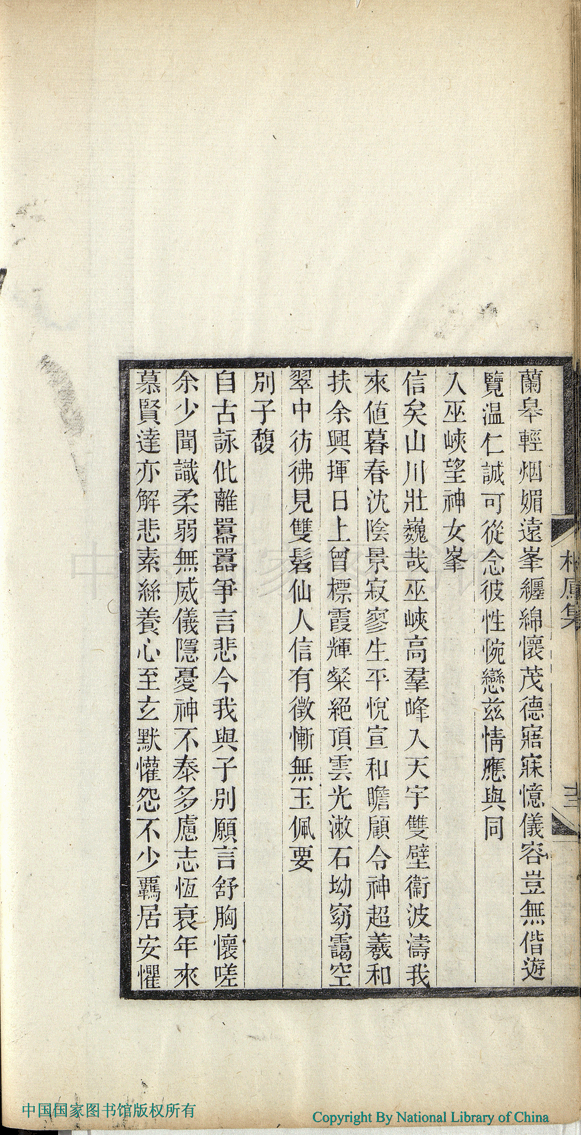 蘭皋輕烟媚遠峯纏綿懷茂德寤寐憶儀容豈無偕遊
覽溫仁誠可從念彼性惋戀茲情應與同
入巫峽望神女峯
信矣山川壯巍哉巫峽高羣峰入天宇雙壁衞波濤我
來値暮春沈陰景寂寥生平悅宣和瞻顧令神超羲和
扶余興揮日上曾標霞輝粲絕頂雲光漱石坳窈靄空
翠中彷彿見雙髻仙人信有徵慚無玉佩要
別子馥
自古詠仳離囂囂爭言悲今我與子別願言舒胸懷嗟
余少聞識柔弱無威儀隱憂神不泰多慮志恆衰年來
慕賢達亦解悲素絲養心至玄默懽怨不少覊居安懼
集
中国国家图书馆版权所有
Copyright By National Library of China